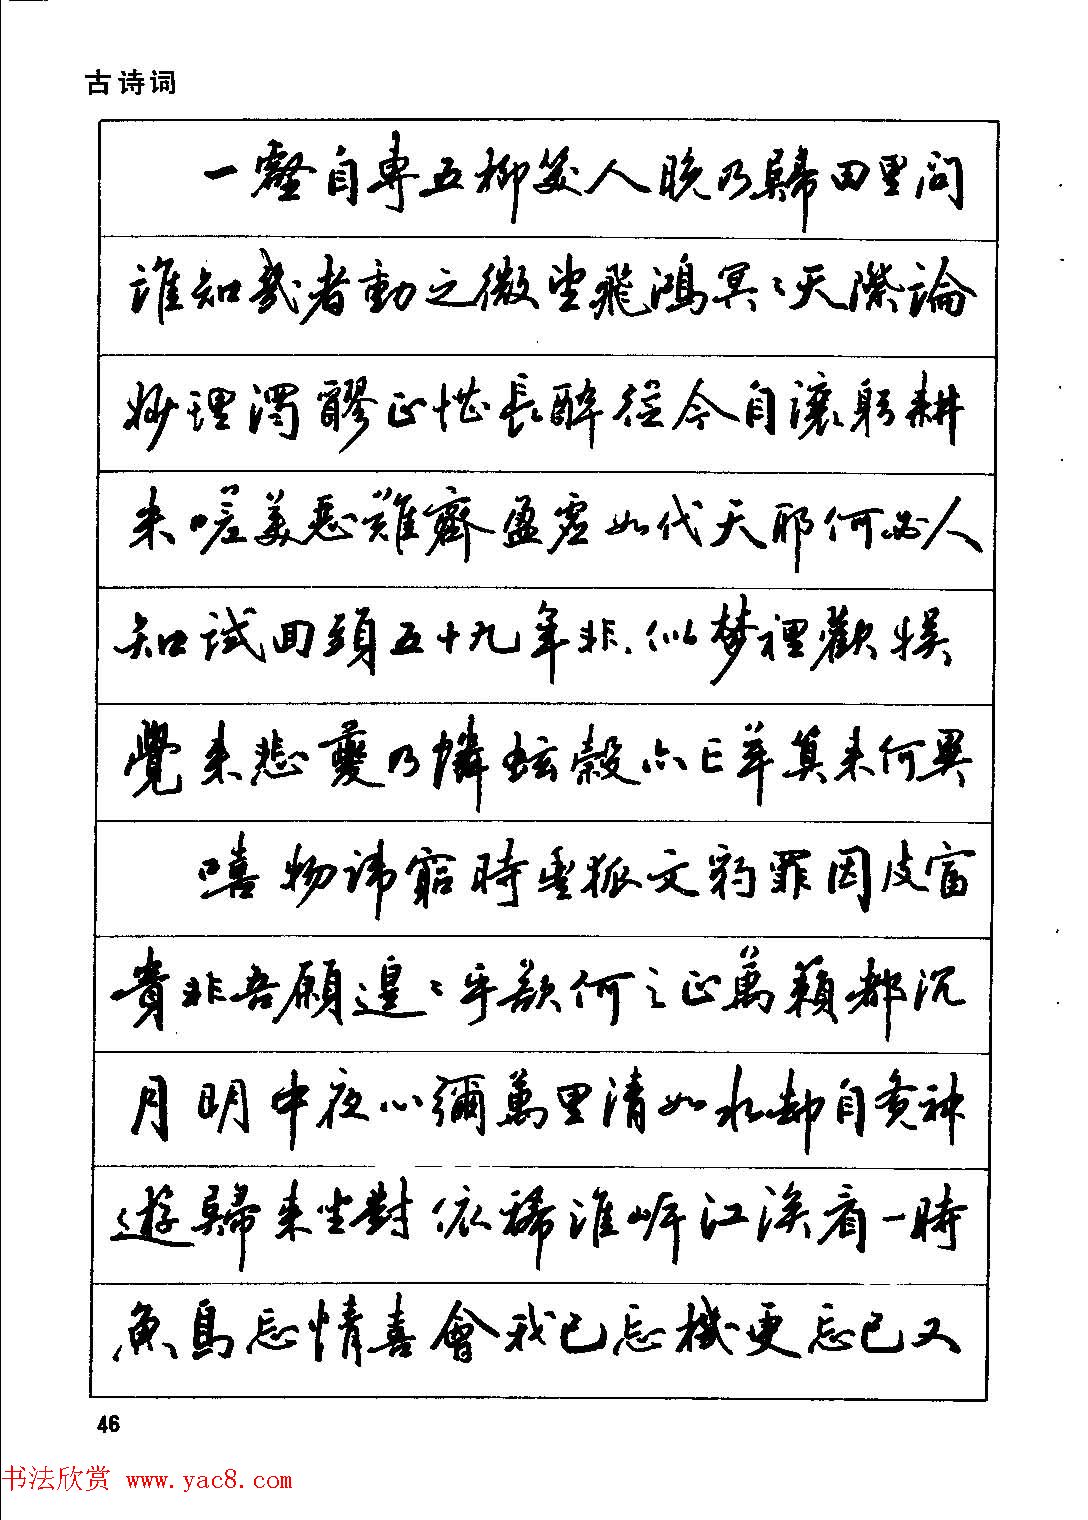 古诗词
一壑自專五柳笑人晚乃歸田里問
誰知幾者動之微望飛鴻冥々天際論
妙理濁醪正堪長醉從今自釀躬耕
米嗟美惡難齊盈虛如代天耶何必人
知試回頭五十九年非似梦裡歡娛
覺來悲夔乃憐蚿穀亦亡羊算來何異
嘻物諱窮時豐狐文豹罪因皮富
貴非吾願遑々乎欲何之正萬籟都沉
月明中夜心彌萬里清如水却自覺神
遊歸來坐對依稀淮岸江涘看一時
魚鳥忘情喜會我已忘機更忘己又
46
书法欣赏 www.yac8.com